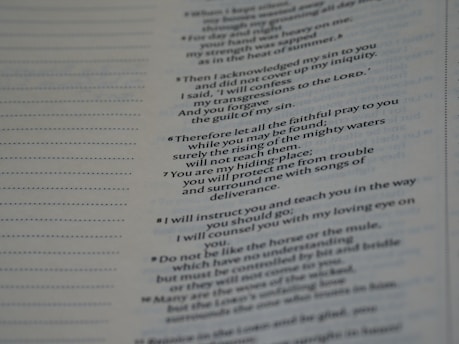 ³When I kept silent,
my bones wasted away
through my groaning all day
⁴For day and night
your hand was heavy on me;
my strength was sapped
as in the heat of summer.ᵇ
⁵Then I acknowledged my sin to you
and did not cover up my iniquity.
I said, 'I will confess
my transgressions to the LORD.'
And you forgave
the guilt of my sin.
⁶Therefore let all the faithful pray to you
while you may be found;
surely the rising of the mighty waters
will not reach them.
⁷You are my hiding-place;
you will protect me from trouble
and surround me with songs of
deliverance.
⁸I will instruct you and teach you in the way
you should go;
I will counsel you with my loving eye on
you.
⁹Do not be like the horse or the mule,
which have no understanding
but must be controlled by bit and bridle
or they will not come to you.
¹⁰Many are the woes of the wicked,
but the LORD's unfailing love
surrounds the one who trusts in him.
¹¹Rejoice in the LORD and be glad, you